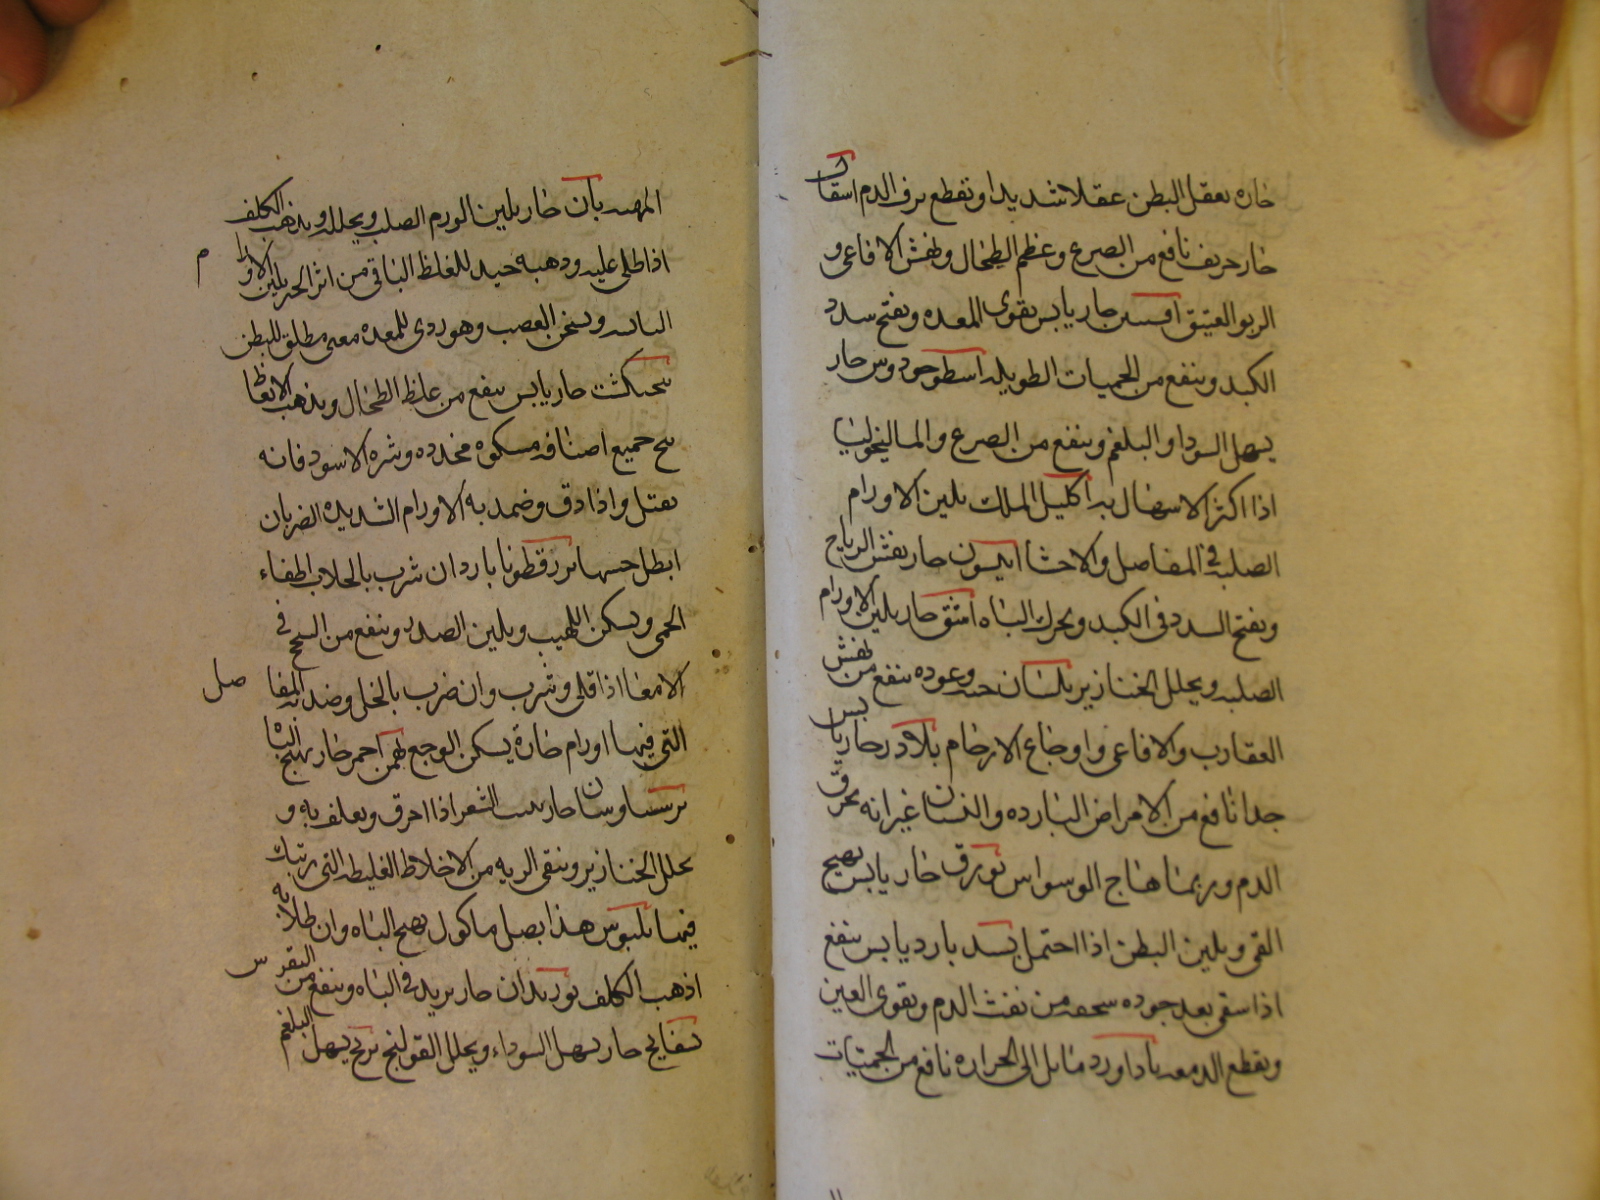 حاره يعقل البطن عقلا شديدا ويقطع نزف الدم اسقال
حار حريف نافع من الصرع وعظم الطحال ونهش الافاعي و
الربو العتيق افسنتين حار يابس يقوى المعده ويفتح سدد
الكبد وينفع من الحميات الطويله اسطوخودوس حار
يسهل السودا والبلغم وينفع من الصرع والماليخوليا
اذا اكثر الاسهال به اكليل الملك يلين الاورام
الصلبه في المفاصل والاحشا انيسون حار يفش الرياح
ويفتح السدد في الكبد ويحرك الباه اشق حار يلين الاورام
الصلبه ويحلل الخنازير بلسان حبه وعوده ينفع من نهش
العقارب والافاعي واوجاع الارحام بلادر حار يابس
جدا نافع من الامراض البارده والنسيان غير انه يحرق
الدم وربما هاج الوسواس بورق حار يابس يهيج
القى ويلين البطن اذا احتمل بسد بارد يابس ينفع
اذا سقى بعد جوده سحقه من نفث الدم ويقوى العين
ويقطع الدمعه باداورد مايل الى الحراره نافع من الحميات
بان حار يلين الورم الصلب ويحلله ويذهب الكلف
اذا طلى عليه ودهنه جيد للغلظ الباقي من اثر الحر يلين الاورام
ويسخن العصب وهو ردى للمعده مغثي مطلق للبطن
بنجنكشت حار يابس ينفع من غلظ الطحال ويذهب الانعاظ
بنج جميع اصنافه مسكره مخدره وشره الاسود فانه
يقتل واذا دق وضمد به الاورام الشديده الضربان
ابطل حسها بزرقطونا بارد ان شرب بالجلاب اطفاء
الحمى ويسكن اللهيب ويلين الصدر وينفع من السحج في
الامعا اذا قلى وشرب وان ضرب بالخل وضمد به المفاصل
التي فيها اورام حارة يسكن الوجع بهمن احمر حار يهيج الباه
برسياوسان حار ينبت الشعر اذا احرق ويعلف به و
يحلل الخنازير وينقى الريه من الاخلاط الغليظه التي ترتبك
فيها بلبوس هذا بصل ماكول يهيج الباه وان طلا به
اذهب الكلف بوزيدان حار يزيد في الباه وينفع من النقرس
بسفايج حار يسهل السوداء ويحلل القولنج برنج يسهل البلغم